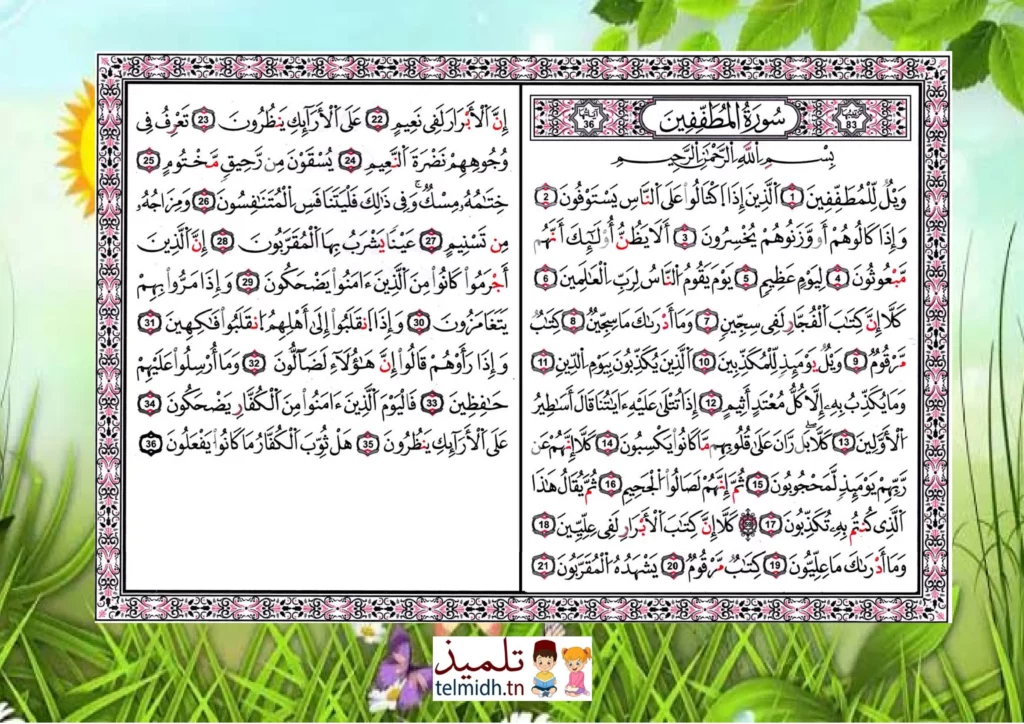 ترتيبها 83
سُورَةُ الْمُطَفِّفِينَ
آياتها 36
بِسْمِ اللَّهِ الرَّحْمَٰنِ الرَّحِيمِ
وَيْلٌ لِّلْمُطَفِّفِينَ 1 الَّذِينَ إِذَا اكْتَالُوا عَلَى النَّاسِ يَسْتَوْفُونَ 2
وَإِذَا كَالُوهُمْ أَو وَّزَنُوهُمْ يُخْسِرُونَ 3 أَلَا يَظُنُّ أُوْلَٰئِكَ أَنَّهُم
مَّبْعُوثُونَ 4 لِيَوْمٍ عَظِيمٍ 5 يَوْمَ يَقُومُ النَّاسُ لِرَبِّ الْعَالَمِينَ 6
كَلَّا إِنَّ كِتَابَ الْفُجَّارِ لَفِي سِجِّينٍ 7 وَمَا أَدْرَىٰكَ مَا سِجِّينٌ 8 كِتَابٌ
مَّرْقُومٌ 9 وَيْلٌ يَوْمَئِذٍ لِّلْمُكَذِّبِينَ 10 الَّذِينَ يُكَذِّبُونَ بِيَوْمِ الدِّينِ 11
وَمَا يُكَذِّبُ بِهِ إِلَّا كُلُّ مُعْتَدٍ أَثِيمٍ 12 إِذَا تُتْلَىٰ عَلَيْهِ ءَايَٰتُنَا قَالَ أَسَٰطِيرُ
الْأَوَّلِينَ 13 كَلَّا بَلْ رَانَ عَلَىٰ قُلُوبِهِم مَّا كَانُوا يَكْسِبُونَ 14 كَلَّا إِنَّهُمْ عَن
رَّبِّهِمْ يَوْمَئِذٍ لَّمَحْجُوبُونَ 15 ثُمَّ إِنَّهُمْ لَصَالُوا الْجَحِيمِ 16 ثُمَّ يُقَالُ هَٰذَا
الَّذِي كُنتُم بِهِ تُكَذِّبُونَ 17 كَلَّا إِنَّ كِتَابَ الْأَبْرَارِ لَفِي عِلِّيِّينَ 18
وَمَا أَدْرَىٰكَ مَا عِلِّيُّونَ 19 كِتَابٌ مَّرْقُومٌ 20 يَشْهَدُهُ الْمُقَرَّبُونَ 21
إِنَّ الْأَبْرَارَ لَفِي نَعِيمٍ 22 عَلَى الْأَرَائِكِ يَنظُرُونَ 23 تَعْرِفُ فِي
وُجُوهِهِمْ نَضْرَةَ النَّعِيمِ 24 يُسْقَوْنَ مِن رَّحِيقٍ مَّخْتُومٍ 25
خِتَٰمُهُ مِسْكٌ وَفِي ذَٰلِكَ فَلْيَتَنَافَسِ الْمُتَنَٰفِسُونَ 26 وَمِزَاجُهُ
مِن تَسْنِيمٍ 27 عَيْنًا يَشْرَبُ بِهَا الْمُقَرَّبُونَ 28 إِنَّ الَّذِينَ
أَجْرَمُوا كَانُوا مِنَ الَّذِينَ ءَامَنُوا يَضْحَكُونَ 29 وَإِذَا مَرُّوا بِهِمْ
يَتَغَامَزُونَ 30 وَإِذَا انقَلَبُوا إِلَىٰ أَهْلِهِمُ انقَلَبُوا فَٰكِهِينَ 31
وَإِذَا رَأَوْهُمْ قَالُوا إِنَّ هَٰؤُلَاءِ لَضَالُّونَ 32 وَمَا أُرْسِلُوا عَلَيْهِمْ
حَٰفِظِينَ 33 فَالْيَوْمَ الَّذِينَ ءَامَنُوا مِنَ الْكُفَّارِ يَضْحَكُونَ 34
عَلَى الْأَرَائِكِ يَنظُرُونَ 35 هَلْ ثُوِّبَ الْكُفَّارُ مَا كَانُوا يَفْعَلُونَ 36
تلميذ
telmidh.tn